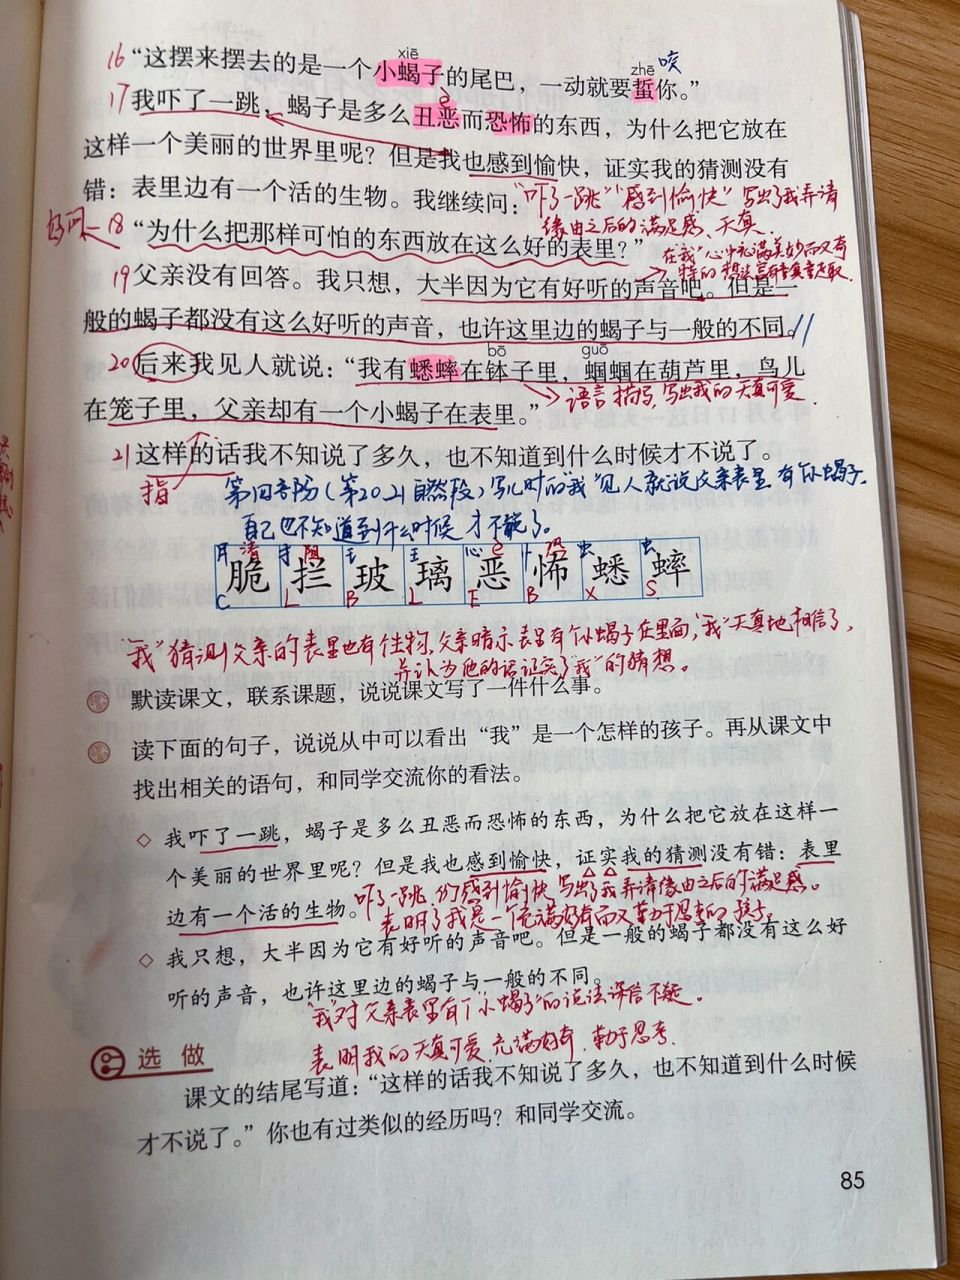 xiē
16 “这摆来摆去的是一个小蝎子的尾巴，一动就要蜇你。”
zhē 咬
17 我吓了一跳，蝎子是多么丑恶而恐怖的东西，为什么把它放在
这样一个美丽的世界里呢？但是我也感到愉快，证实我的猜测没有
错：表里边有一个活的生物。我继续问：
“吓了一跳”“感到愉快”写出了我弄清
缘由之后的满足感、天真
好问 18 “为什么把那样可怕的东西放在这么好的表里？”
在“我”心中充满美妙而又奇
特的想法
19 父亲没有回答。我只想，大半因为它有好听的声音吧。但是一
般的蝎子都没有这么好听的声音，也许这里边的蝎子与一般的不同。//
bō guō
20 后来我见人就说：“我有蟋蟀在钵子里，蝈蝈在葫芦里，鸟儿
在笼子里，父亲却有一个小蝎子在表里。”
语言描写，写出我的天真可爱．
21 这样的话我不知说了多久，也不知道到什么时候才不说了。
指
第四部分（第20.21自然段）写儿时的“我”见人就说父亲表里有小蝎子．
自己也不知道到什么时候才不说了。
月 清 扌 阻 王 王 心 è 忄 恐 虫 虫
脆 拦 玻 璃 恶 怖 蟋 蟀
C L B L E B X S
“我”猜测父亲的表里也有生物，父亲暗示表里有个小蝎子在里面，“我”天真地相信了，
并认为他的话证实了“我”的猜想。
默读课文，联系课题，说说课文写了一件什么事。
读下面的句子，说说从中可以看出“我”是一个怎样的孩子。再从课文中
找出相关的语句，和同学交流你的看法。
◇ 我吓了一跳，蝎子是多么丑恶而恐怖的东西，为什么把它放在这样一
个美丽的世界里呢？但是我也感到愉快，证实我的猜测没有错：表里
边有一个活的生物。
吓了一跳，感到愉快 写出了我弄清缘由之后的满足感。
表明了我是一个充满好奇而又勤于思考的孩子．
◇ 我只想，大半因为它有好听的声音吧。但是一般的蝎子都没有这么好
听的声音，也许这里边的蝎子与一般的不同。
“我”对父亲表里有个“小蝎子”的说法深信不疑．
表明我的天真可爱．充满好奇．勤于思考．
选做
课文的结尾写道：“这样的话我不知说了多久，也不知道到什么时候
才不说了。”你也有过类似的经历吗？和同学交流。
85